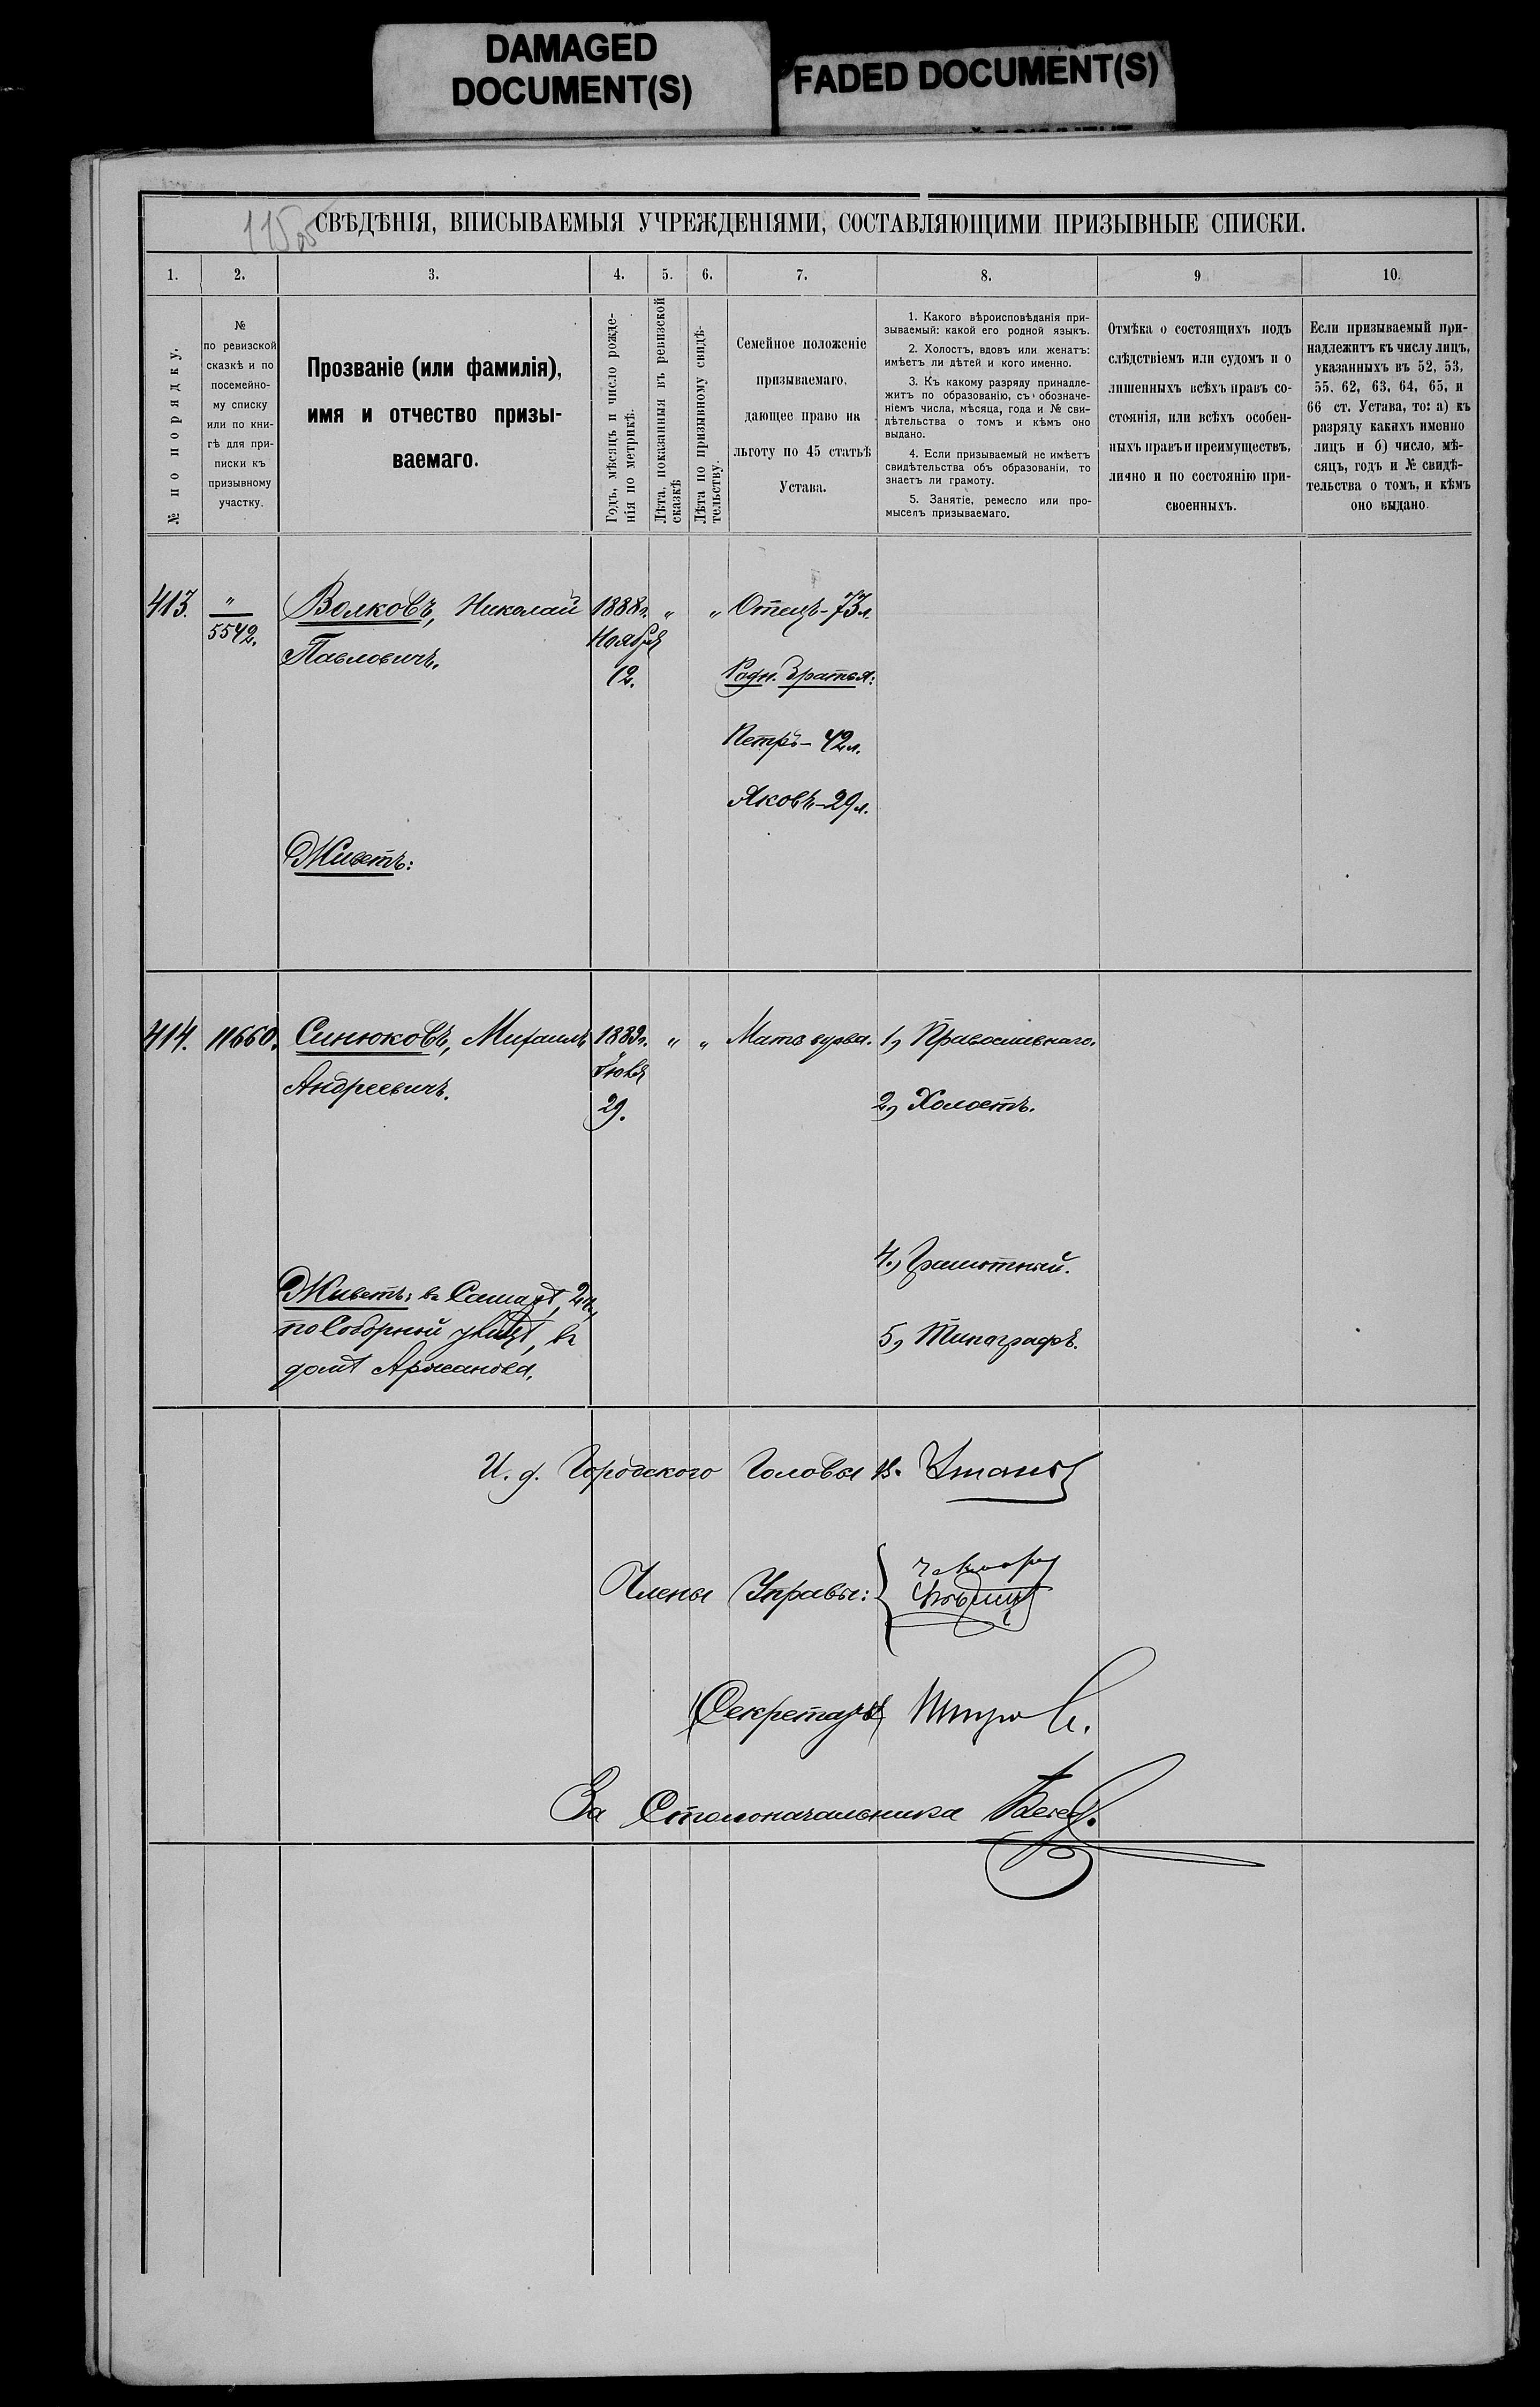 DAMAGED
DOCUMENT(S)
FADED DOCUMENT(S)
СВѢДѢНІЯ, ВПИСЫВАЕМЫЯ УЧРЕЖДЕНІЯМИ, СОСТАВЛЯЮЩИМИ ПРИЗЫВНЫЕ СПИСКИ.
1. 2. 3. 4. 5. 6. 7. 8. 9 10.
№ по порядку.
№
по ревизской
сказкѣ и по
посемейно-
му списку
или по кни-
гѣ для при-
писки къ
призывному
участку.
Прозваніе (или фамилія),
имя и отчество призы-
ваемаго.
Годъ, мѣсяцъ и число рожде-
нія по метрикѣ.
Лѣта, показанныя въ ревизской
сказкѣ
Лѣта по призывному свидѣ-
тельству.
Семейное положеніе
призываемаго,
дающее право на
льготу по 45 статьѣ
Устава.
1. Какого вѣроисповѣданія при-
зываемый: какой его родной языкъ.
2. Холостъ, вдовъ или женатъ:
имѣетъ ли дѣтей и кого именно.
3. Къ какому разряду принадле-
житъ по образованію, съ обозначе-
ніемъ числа, мѣсяца, года и № сви-
дѣтельства о томъ и кѣмъ оно
выдано.
4. Если призываемый не имѣетъ
свидѣтельства объ образованіи, то
знаетъ ли грамоту.
5. Занятіе, ремесло или про-
мыселъ призываемаго.
Отмѣка о состоящихъ подъ
слѣдствіемъ или судомъ и о
лишенныхъ всѣхъ правъ со-
стоянія, или всѣхъ особен-
ныхъ правъ и преимуществъ,
лично и по состоянію при-
своенныхъ.
Если призываемый при-
надлежитъ къ числу лицъ,
указанныхъ въ 52, 53,
55, 62, 63, 64, 65, и
66 ст. Устава, то: а) къ
разряду какихъ именно
лицъ и б) число, мѣ-
сяцъ, годъ и № свидѣ-
тельства о томъ, и кѣмъ
оно выдано.
413. " Волковъ, Николай 1888г. " " Отецъ-73л.
5542. Павловичъ. Ноября
12. Родн. братья:
Петръ-42л.
Яковъ-29л.
Живетъ:
414. 11660. Синюковъ, Михаилъ 1889г. " " Мать вдова. 1, Православнаго.
Андреевичъ.
29. 2, Холостъ.
4., Грамотный.
Живетъ: въ Самарѣ, 2ч,
по Соборной улицѣ, въ 5, Типографъ.
домѣ Аржанова.
И. д. Городского Головы
Члены Управы:
Секретарь
За Столоначальника